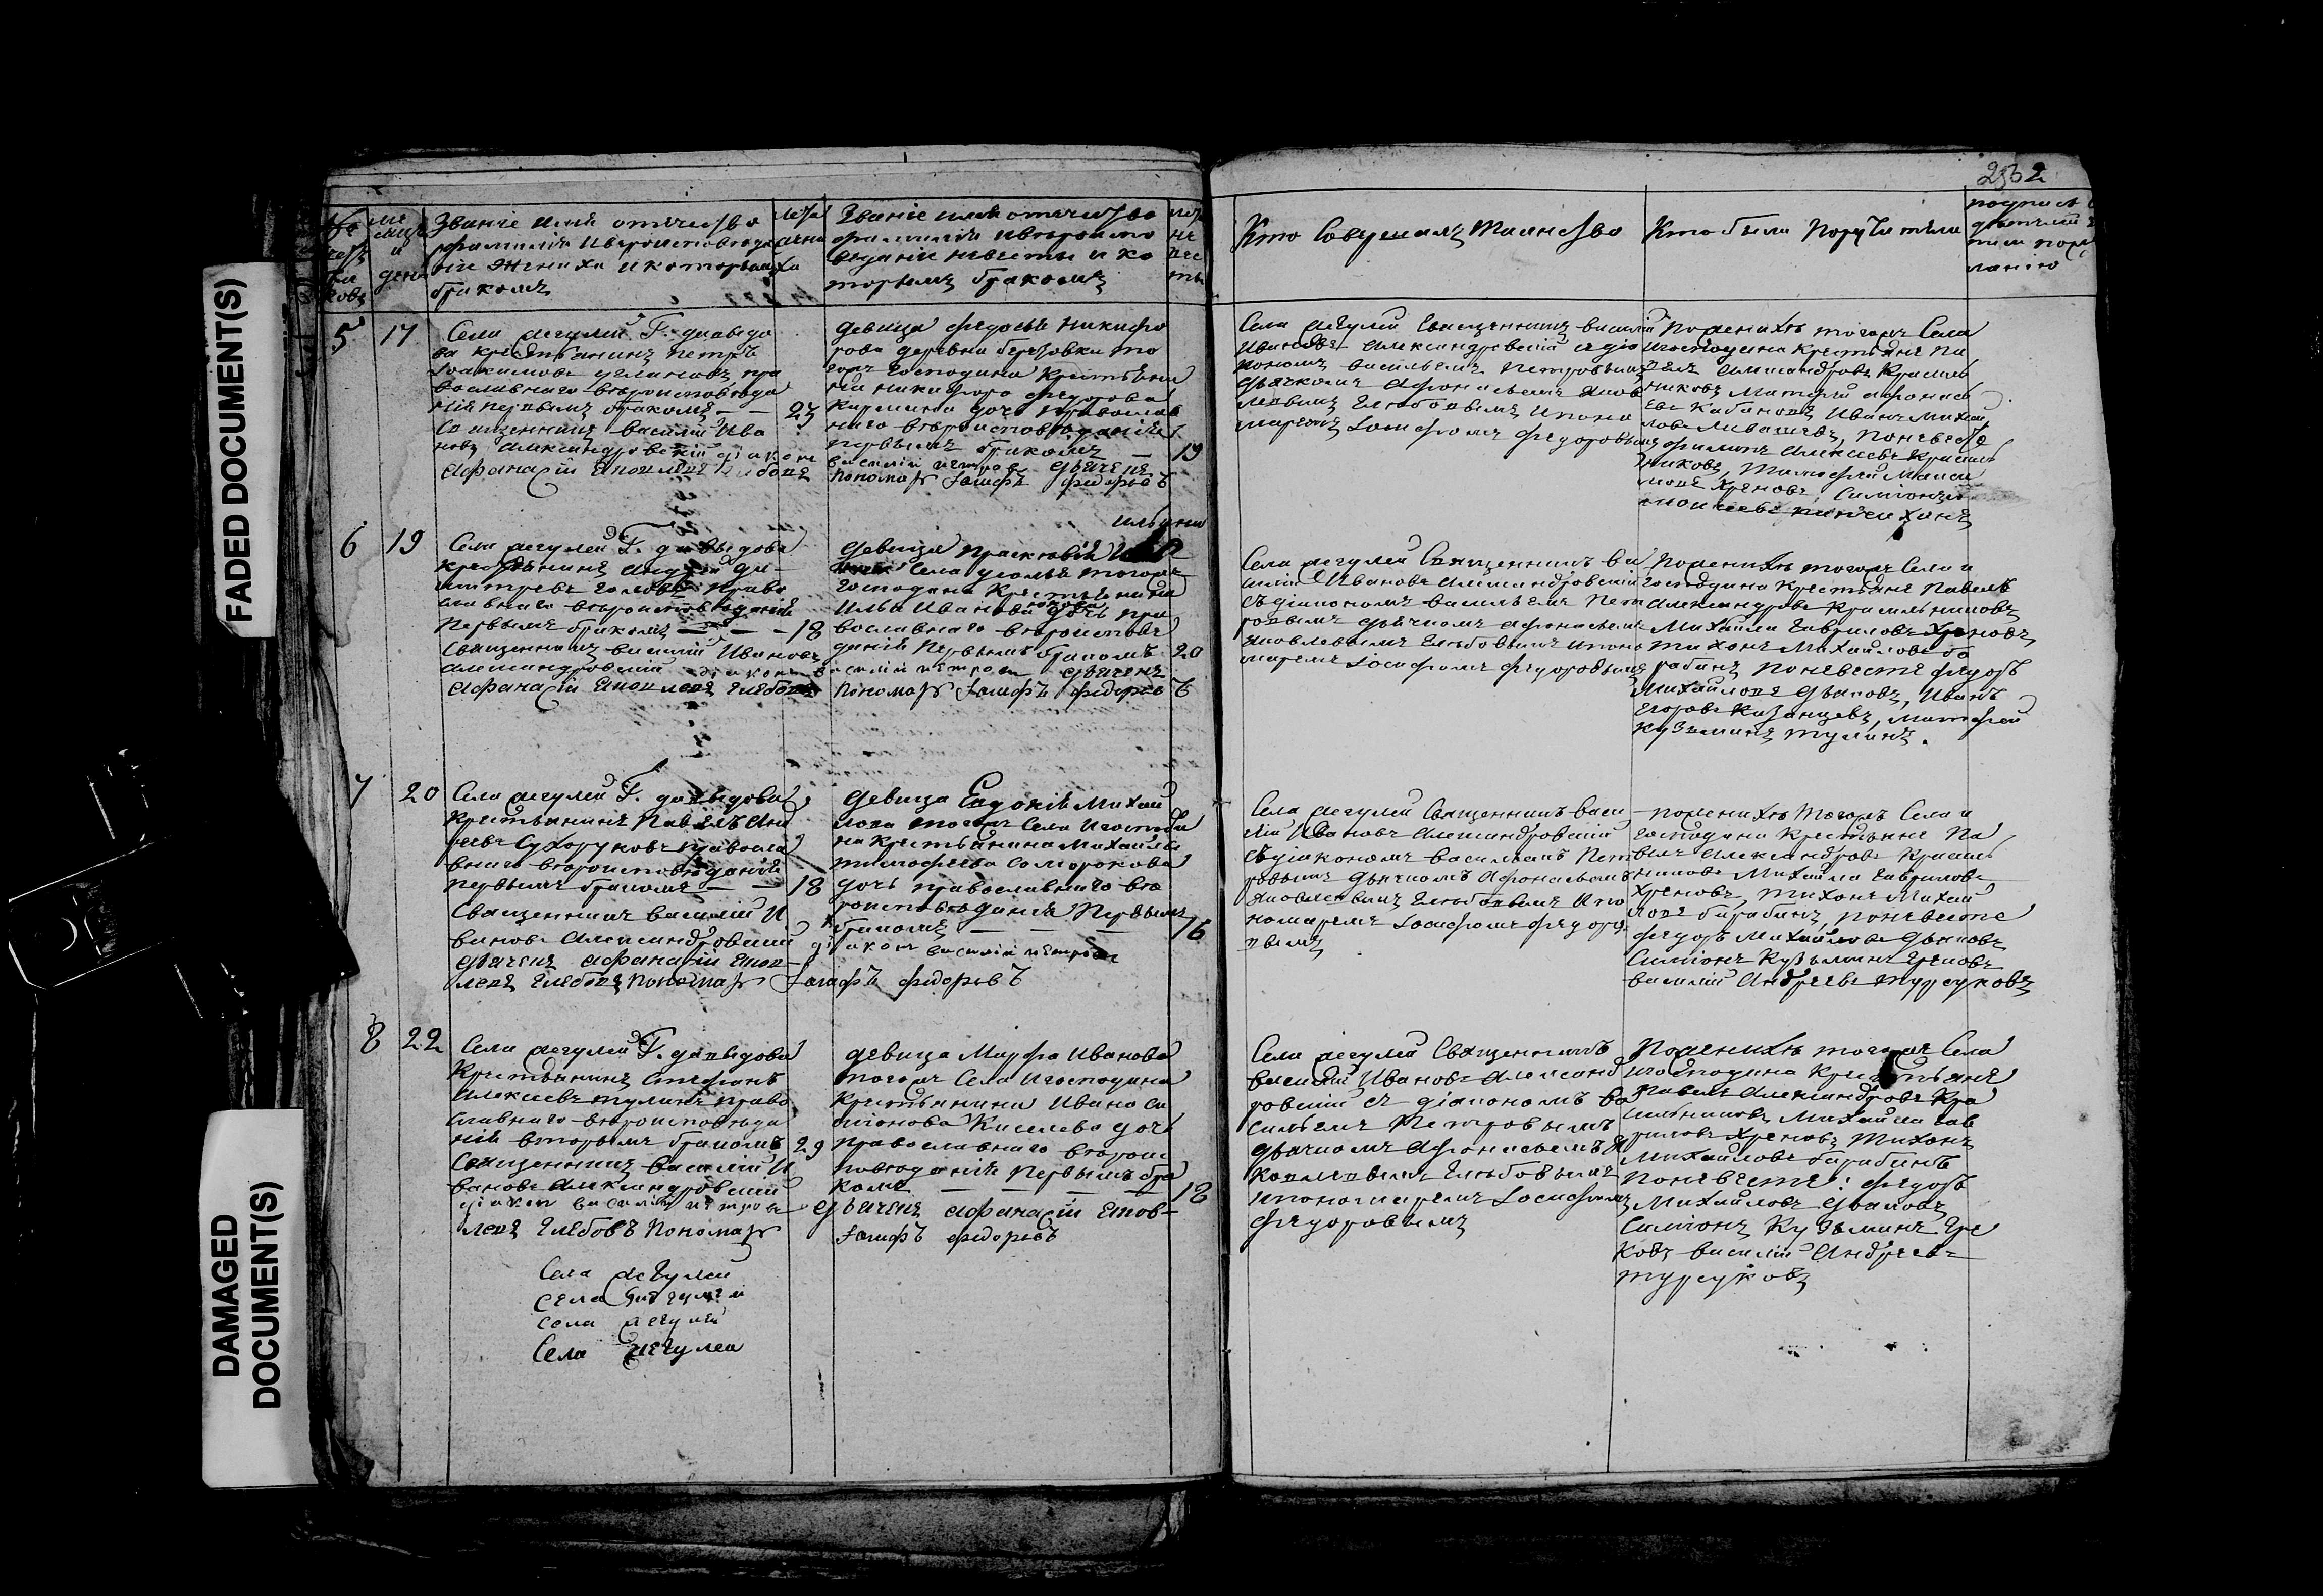 FADED DOCUMENT(S)
DAMAGED
DOCUMENT(S)
2
Званіе имя отечество
фамилія и вероисповеда
ніе жениха и которымъ
бракомъ
Званіе имя отечество
фамилія и вероиспо
веданіе невесты и ко
торымъ бракомъ
Кто Совершалъ Таинство
Кто были Поручители
5
17
Села Г. давыдо
ва крестьянинъ петръ
пра
вославнаго вероисповеда
нія первымъ бракомъ
Священникъ Василій Ива
новъ Александровскій діаконъ
Афанасій Яковлевъ Глебовъ
23
девица федосья Никифо
рова деревни березовки то
гожъ Господина Крестьяни
на Никифора федорова
дочь православ
наго вероисповеданія
первымъ бракомъ
василій петровъ дьячекъ
Пономарь Іосифъ федоровъ
19
Села Священникъ василій
Ивановъ Александровскій съ діа
кономъ васильемъ Петровымъ
дьячкомъ Афонасьемъ Яков
левымъ Глебовымъ и поно
маремъ Іосифомъ федоровымъ
Пожених тогожъ Села
и господина Крестьяне Па
велъ Александровъ Красиль
никовъ Матфей Афонась
евъ Кабановъ Иванъ Михай
ловъ Поневесте
филипъ Алексеевъ Красиль
никовъ, Тимофей
Хреновъ, Симіонъ
6
19
Села Г. давыдова
крестьянинъ Андрей ди
митревъ право
славнаго вероисповеданія
Первымъ бракомъ
Священникъ василій Ивановъ
Александровскій діаконъ
Афанасій Яковлевъ Глебовъ
18
девица Прасковія
Села тогожъ
господина Крестьянина
Ильи Иванова дочь пра
вославнаго вероиспове
данія Первымъ бракомъ
василій петровъ дьячекъ
Пономарь Іосифъ федоровъ
20
Села Священникъ Ва
силій Ивановъ Александровскій
съ діакономъ васильемъ Пет
ровымъ дьячкомъ Афонасьемъ
Яковлевымъ Глебовымъ и поно
маремъ Іосифомъ федоровымъ
Пожених тогожъ Села и
господина крестьяне Павелъ
Александровъ Красильниковъ
Михайла Гавриловъ Хреновъ
Тихонъ Михайловъ ба
рабинъ Поневесте федоръ
Михайловъ Дьяковъ, Иванъ
Егоровъ Казанцевъ, Матфей
Кузьминъ тулинъ.
7
20
Села Г. давыдова
Крестьянинъ Павелъ Анд
реевъ Сухоруковъ правосла
внаго вероисповеданія
первымъ бракомъ
Священникъ Василій И
вановъ Александровскій
дьячекъ Афанасій Яков
левъ Глебовъ Пономарь
18
девица Евдокія Михай
лова тогожъ Села и господи
на крестьянина Михайлы
тимофеева
дочь православнаго ве
роисповеданія Первымъ
бракомъ
діаконъ василій петровъ
Іосифъ федоровъ
16
Села Священникъ Васи
лій Ивановъ Александровскій
съ діакономъ васильемъ Пет
ровымъ дьячкомъ Афонасьемъ
Яковлевымъ Глебовымъ и по
номаремъ Іосифомъ федоро
вымъ
пожених Тогожъ Села и
господина крестьяне Па
велъ Александровъ Красиль
никовъ Михайла Гавриловъ
Хреновъ, Тихонъ Михай
ловъ барабинъ, поневесте
федоръ Михайловъ Дьяковъ
Симіонъ Кузьминъ Грековъ
василій Андреевъ турсуковъ
8
22
Села Г. давыдова
Крестьянинъ Стефанъ
Алексеевъ тулинъ право
славнаго вероисповеда
нія вторымъ бракомъ
Священникъ Василій И
вановъ Александровскій
діаконъ василій петровъ
левъ Глебовъ Пономарь
29
девица Марфа Иванова
тогожъ Села и господина
Крестьянина Ивана Си
монова Киселева дочь
православнаго вероис
поведанія Первымъ бра
комъ
дьячекъ Афанасій Яков
Іосифъ федоровъ
18
Села Священникъ
василій Ивановъ Александ
ровскій съ діакономъ ва
сильемъ Петровымъ
дьячкомъ Афонасьемъ Я
ковлевымъ Глебовымъ
и пономаремъ Іосифомъ
федоровымъ
Пожених тогожъ Села
и господина Крестьяне
Павелъ Александровъ Кра
сильниковъ Михайла Гав
риловъ Хреновъ Тихонъ
Михайловъ барабинъ
Поневесте: федоръ
Михайловъ Дьяковъ
Симіонъ Кузьминъ Гре
ковъ василій Андреевъ
турсуковъ
Села
села
села
Села